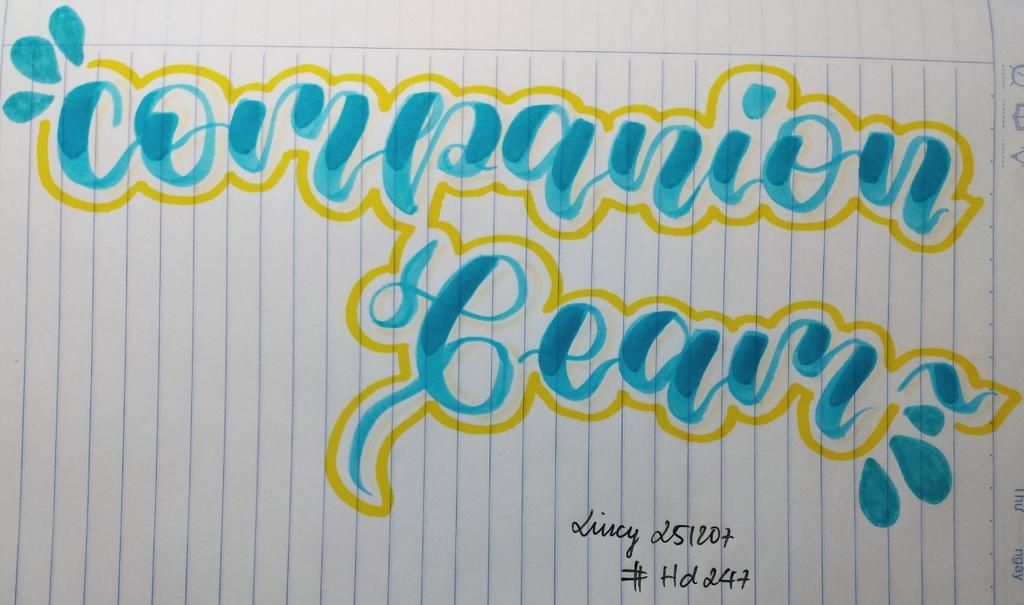 Companion
Team
Lincy 251207
# Hd247
Thứ
ngày